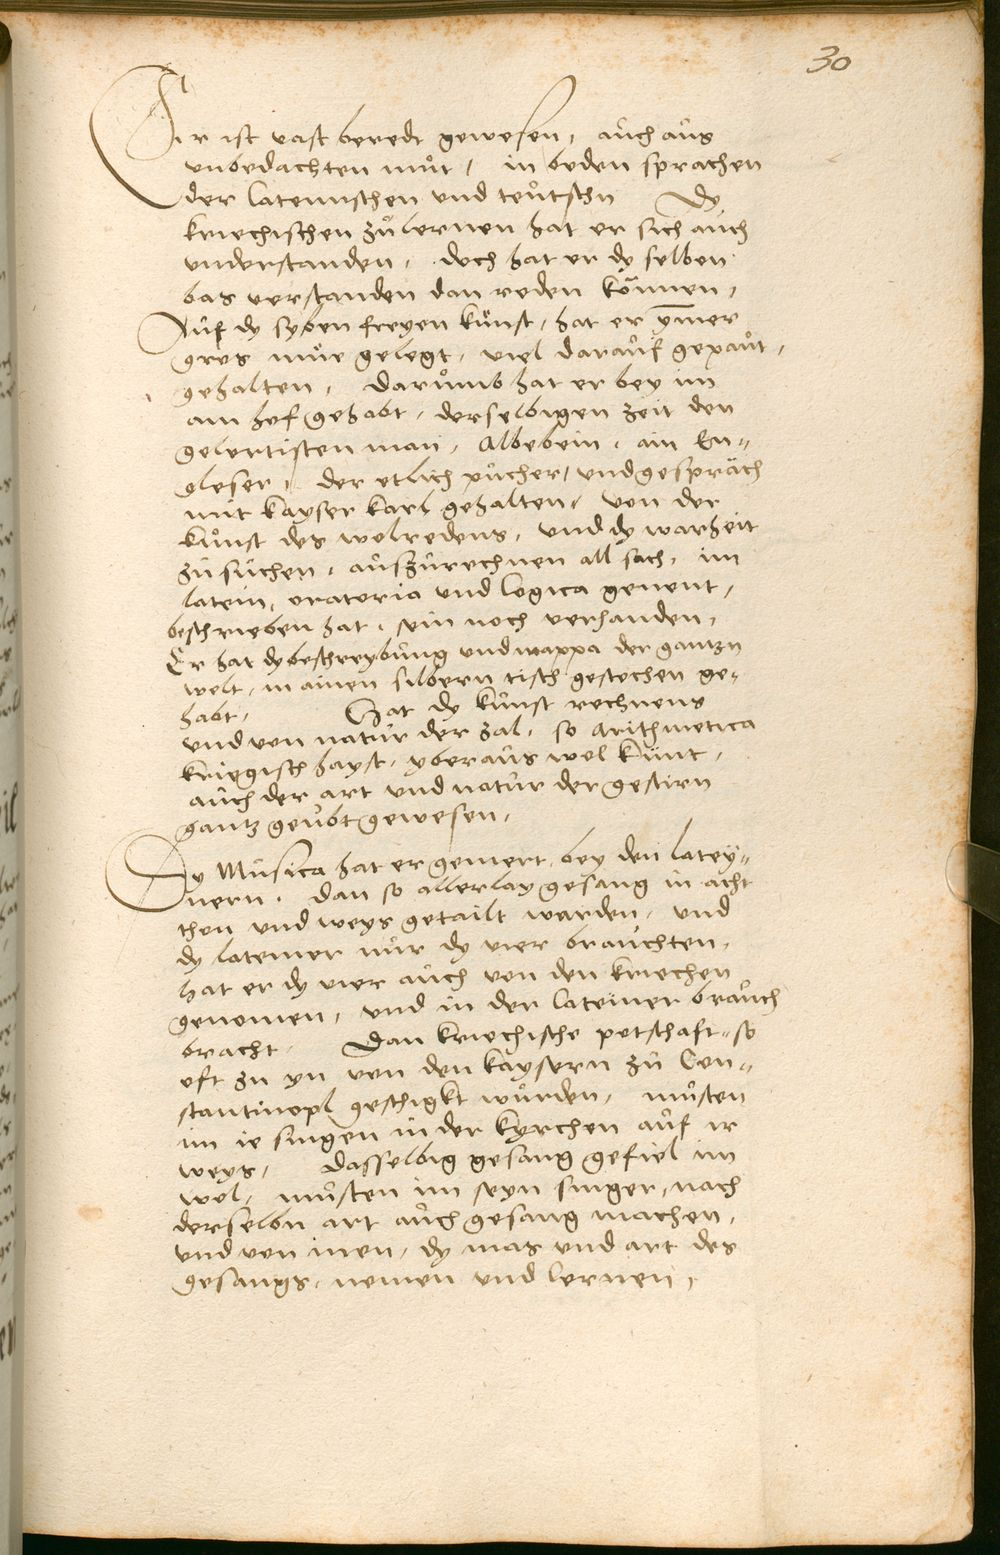 30
Er ist vast beredt gewesen, auch aus
unbedachten můt, in beden sprachen
der lateinischen und teůtschn Dy
kriechischen zůlernen hat er sich auch
understanden, doch hat er dy selben
bas verstanden dan reden können,
Auf dy syben freyen künst, hat er ymer
gros müe gelegt, viel darauf gepaut,
gehalten, Darůmb hat er bey im
am hof gehabt, derselbigen zeit den
gelertisten man, Albebein, ain En-
gleser, der etlich pücher, und gespräch
mit kayser karl gehalten, von der
kůnst des wolredens, und dy warheit
zů süchen, auszůrechnen all sach, im
latein, oratoria und logica genent,
beschrieben hat, sein noch verhanden,
Er hat dy beschreybůng und mappa der gantzn
welt, in ainen silbern tisch gestochen ge-
habt, Hat dy kůnst rechnens
und von natůr der zal, so Arithmetica
kriegisch hayst, yberaůs wol künt,
auch der art und natůr der gestirn
gantz geübt gewesen,
Dy Můsica hat er gemert bey den latey-
nern, dan so allerlay gesang in acht
thon und weys getailt werden, und
dy lateiner nůr dy vier brauchten,
hat er dy vier auch von den kriechen
genomen, und in der lateiner brauch
bracht, Dan kriechische potschaft so
oft zu yn von den kaysern zů Con-
stantinopl geschigkt wůrden, můsten
im ie singen in der kyrchen aůf ir
weys, Dasselbig gesang gefiel im
wol, můsten im seyn singer, nach
derselbn art aůch gesang machen,
und von inen, dy mas und art des
gesangs, nemen und lernen,